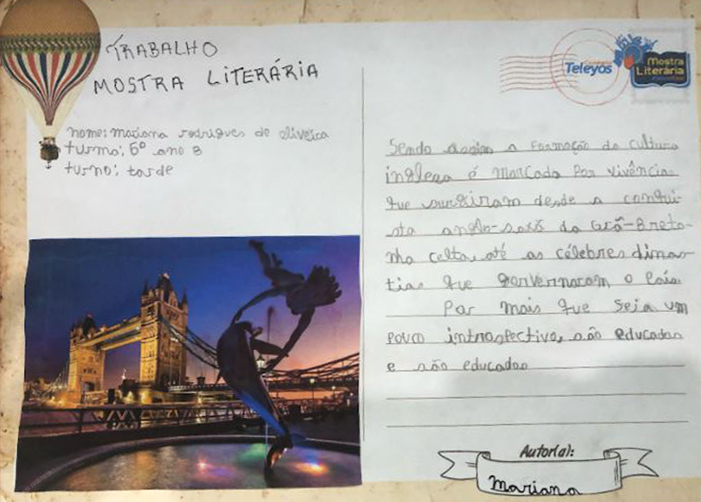 TRABALHO
MOSTRA LITERÁRIA
nome: mariana rodrigues de oliveira
turma: 6º ano B
turno: tarde
Teleyos
Mostra
Literária
Sendo assim a formação da cultura
inglesa é marcada por vivência
que surgiram desde a conqui
sta anglo-saxã da Grã-Breta-
nha celta, até as célebres dinas
tias que gorvernaram o país.
Por mais que seja um
povo introspectivo, são educados
e são educados
Autor(a):
Mariana